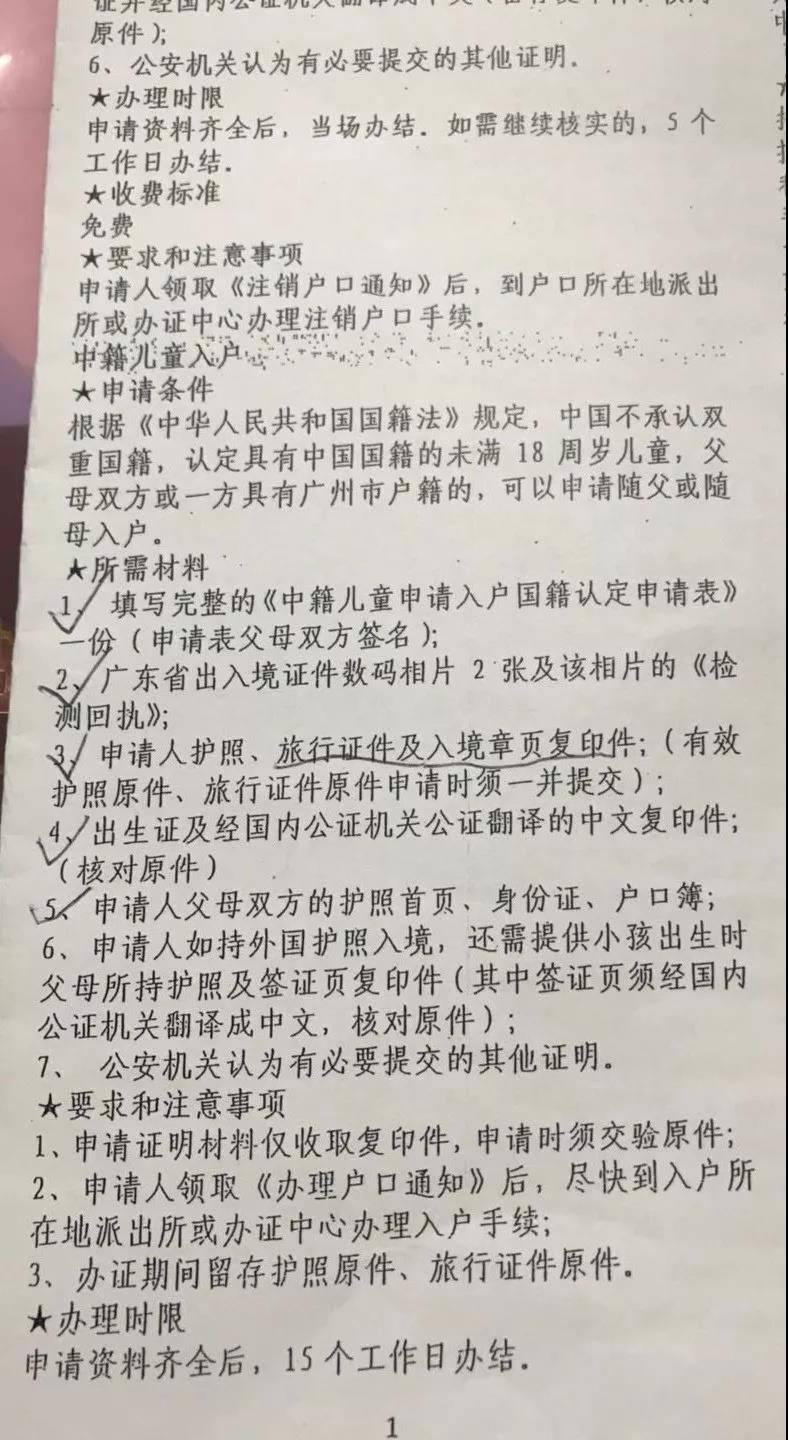 证并经国内公证机关翻译成中文(
原件);
6、公安机关认为有必要提交的其他证明.
★办理时限
申请资料齐全后, 当场办结. 如需继续核实的, 5 个
工作日办结.
★收费标准
免费
★要求和注意事项
申请人领取《注销户口通知》后, 到户口所在地派出
所或办证中心办理注销户口手续.
中籍儿童入户
★申请条件
根据《中华人民共和国国籍法》规定, 中国不承认双
重国籍, 认定具有中国国籍的未满 18 周岁儿童, 父
母双方或一方具有广州市户籍的, 可以申请随父或随
母入户。
★所需材料
1、填写完整的《中籍儿童申请入户国籍认定申请表》
一份 (申请表父母双方签名);
2、广东省出入境证件数码相片 2 张及该相片的《检
测回执》;
3、申请人护照、旅行证件及入境章页复印件; (有效
护照原件、旅行证件原件申请时须一并提交);
4、出生证及经国内公证机关公证翻译的中文复印件;
(核对原件)
5、申请人父母双方的护照首页、身份证、户口簿;
6、申请人如持外国护照入境, 还需提供小孩出生时
父母所持护照及签证页复印件 (其中签证页须经国内
公证机关翻译成中文, 核对原件);
7、 公安机关认为有必要提交的其他证明.
★要求和注意事项
1、申请证明材料仅收取复印件, 申请时须交验原件;
2、申请人领取《办理户口通知》后, 尽快到入户所
在地派出所或办证中心办理入户手续;
3、办证期间留存护照原件、旅行证件原件.
★办理时限
申请资料齐全后, 15 个工作日办结.
1